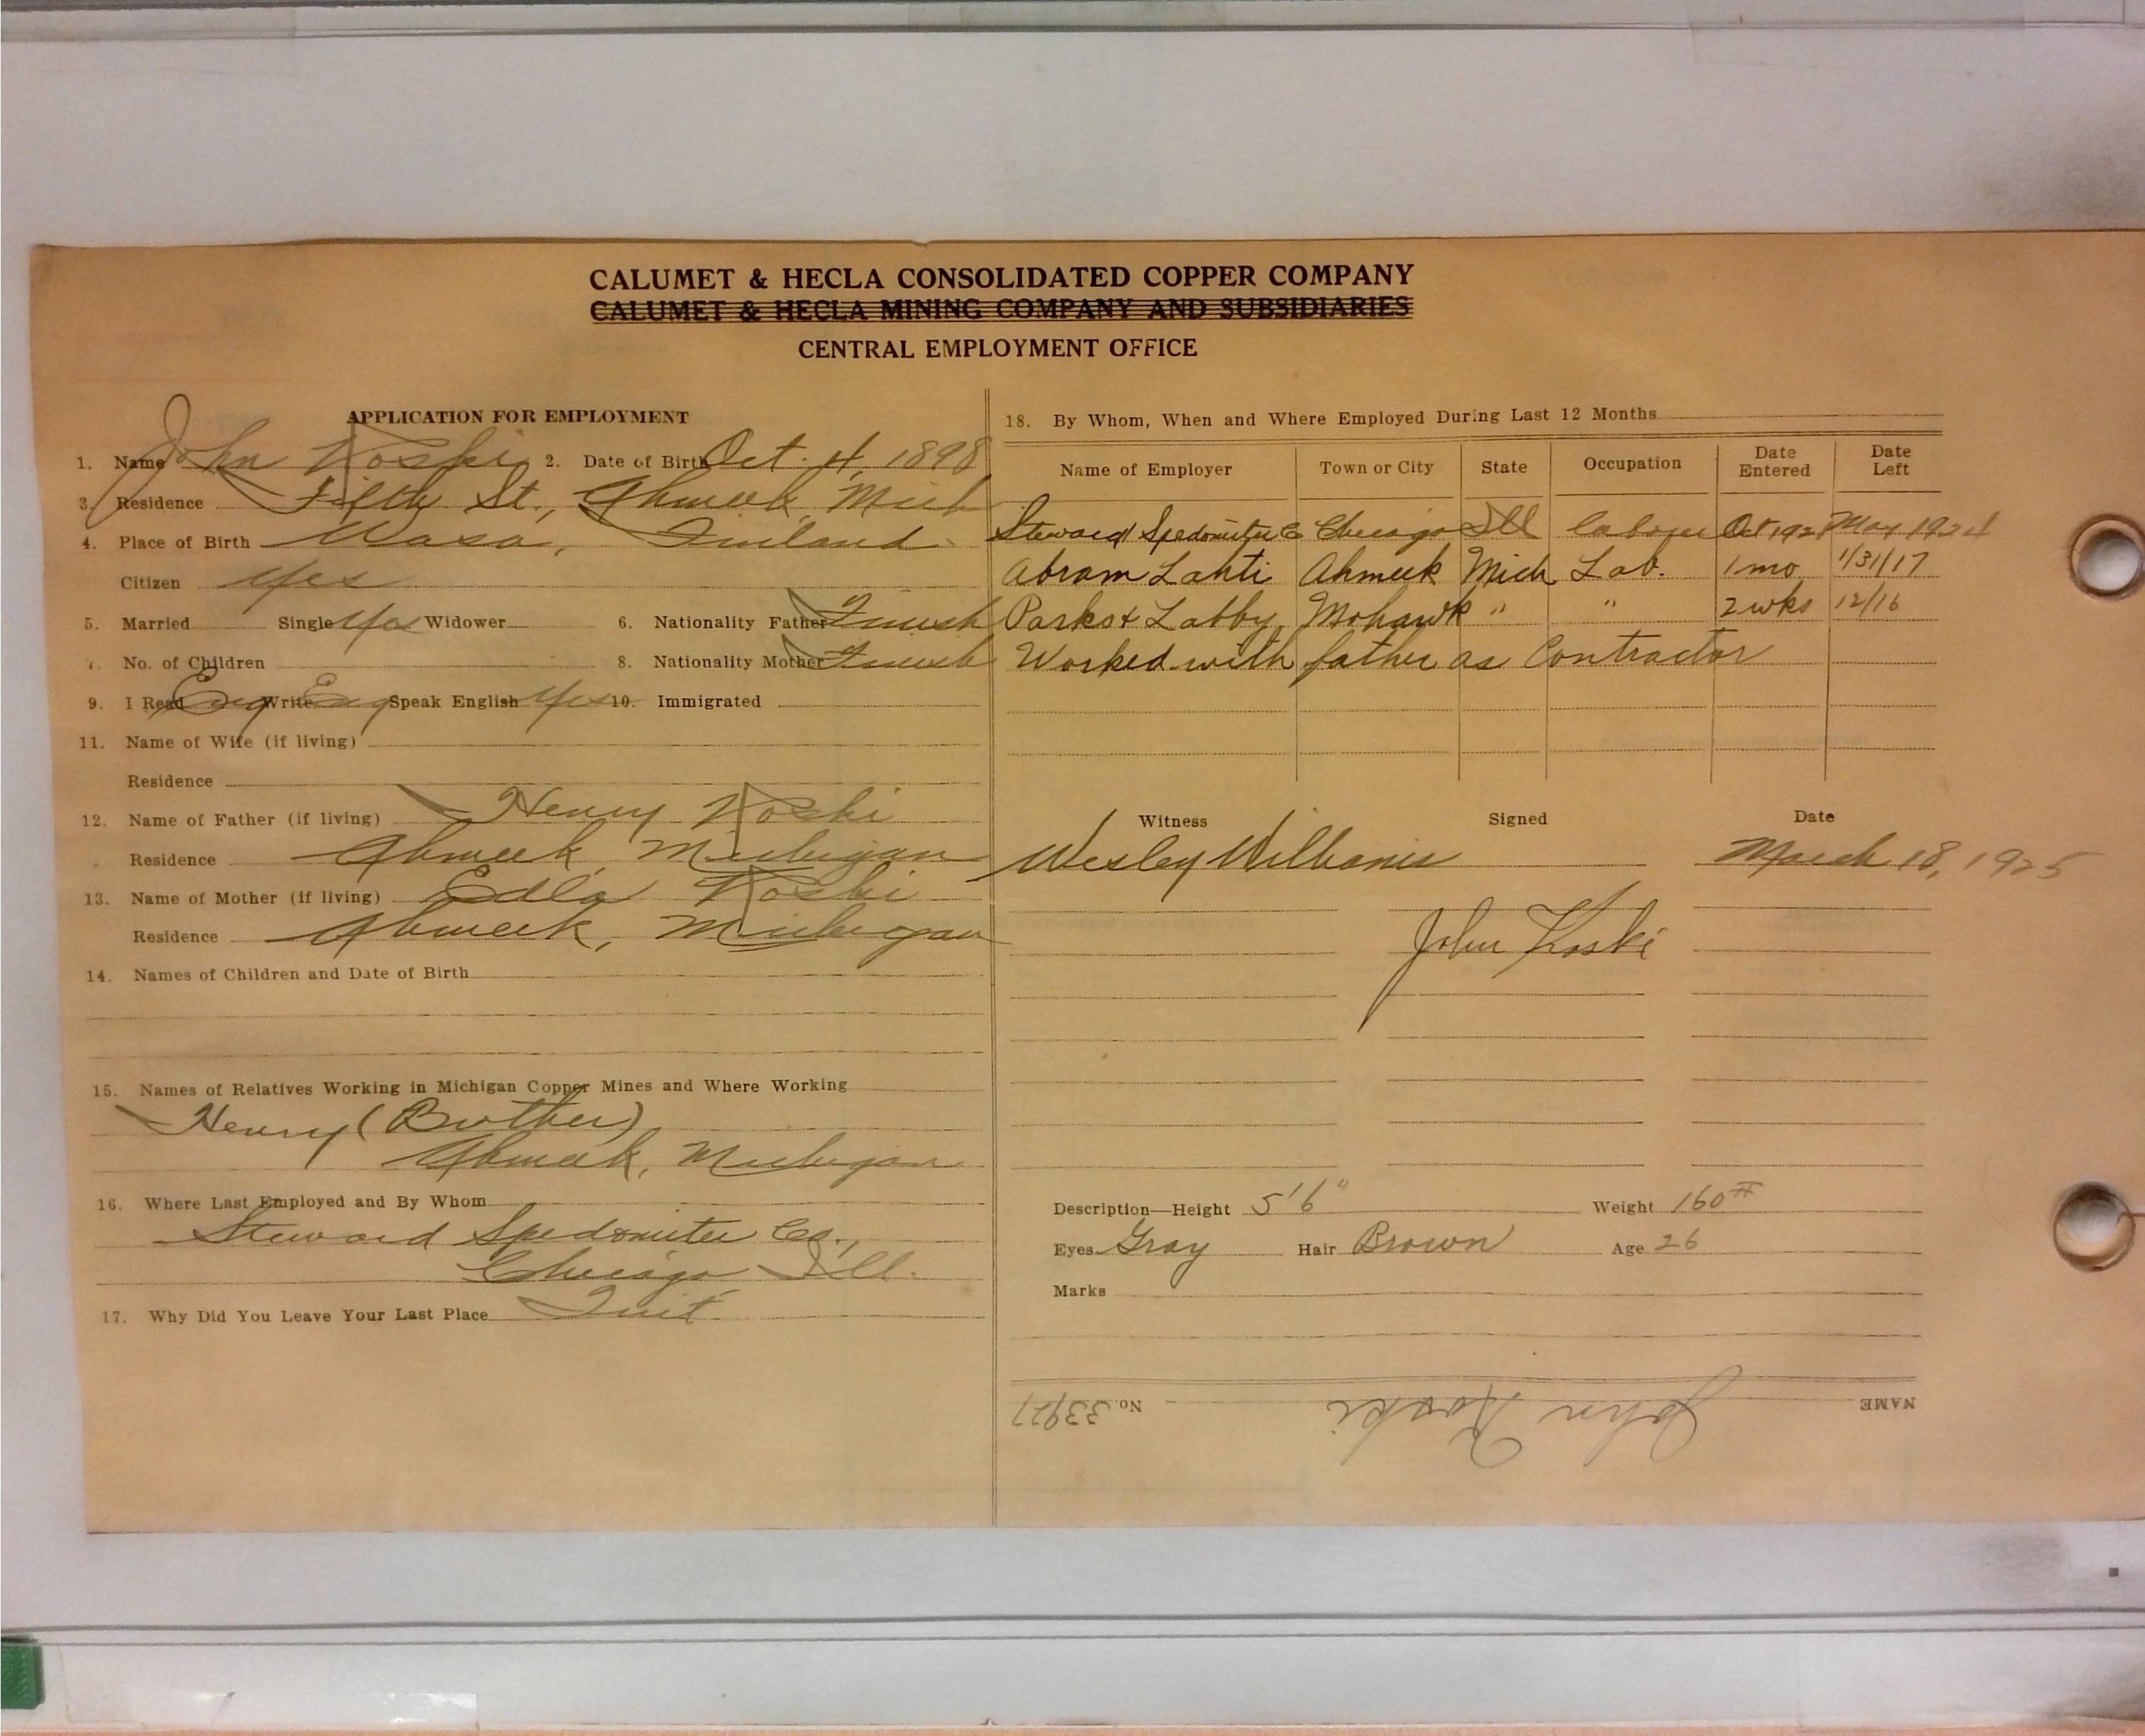 CALUMET & HECLA CONSOLIDATED COPPER COMPANY
CALUMET & HECLA MINING COMPANY AND SUBSIDIARIES
CENTRAL EMPLOYMENT OFFICE
APPLICATION FOR EMPLOYMENT
1. Name John Koski 2. Date of Birth Oct. 4, 1898
3. Residence Fifth St., Ahmeek, Mich
4. Place of Birth Wasa, Finland
Citizen Yes
5. Married Single Yes Widower 6. Nationality Father Finnish
7. No. of Children 8. Nationality Mother Finnish
9. I Read Eng Write Eng Speak English Yes 10. Immigrated
11. Name of Wife (if living)
Residence
12. Name of Father (if living) Henry Koski
Residence Ahmeek, Michigan
13. Name of Mother (if living) Edla Koski
Residence Ahmeek, Michigan
14. Names of Children and Date of Birth
15. Names of Relatives Working in Michigan Copper Mines and Where Working
Henry (Brother)
Ahmeek, Michigan
16. Where Last Employed and By Whom
Steward Spedomiter Co.,
Chicago Ill.
17. Why Did You Leave Your Last Place Quit
18. By Whom, When and Where Employed During Last 12 Months
Name of Employer Town or City State Occupation Date Entered Date Left
Steward Spedomiter Co Chicago Ill laborer Oct May 1924
Abram Lahti Ahmeek Mich Lab. 1 mo 1/31/17
Parks & Labby Mohawk " " 2 wks 12/16
Worked with father as Contractor
Witness Signed Date
Wesley Williams March 18, 1925
John Koski
Description—Height 5'6" Weight 160#
Eyes Gray Hair Brown Age 26
Marks
NAME John Koski No. 33927